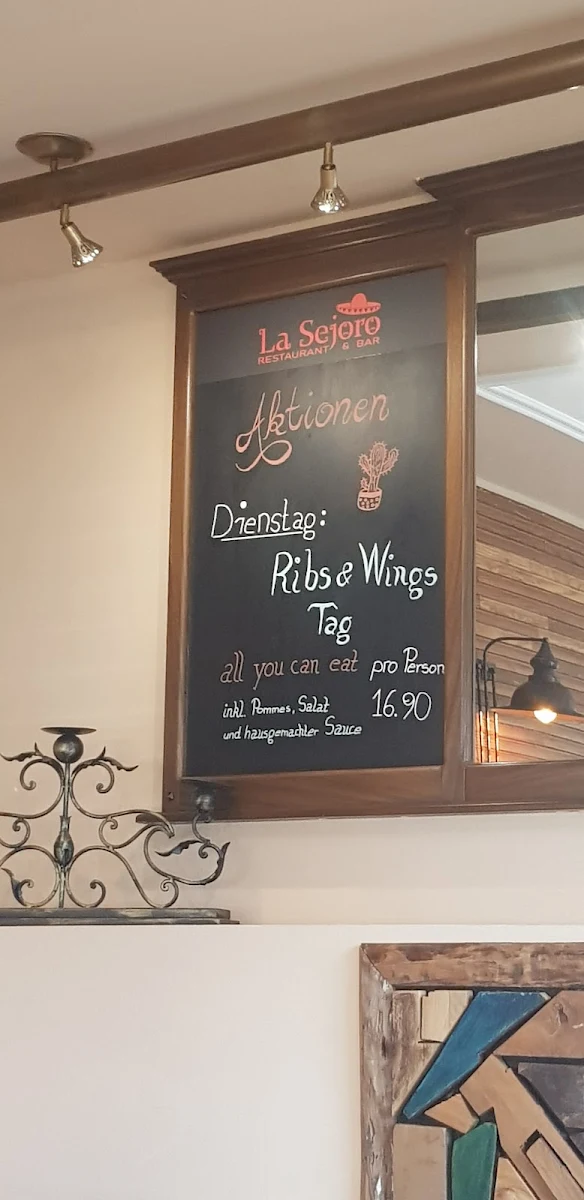 La Sejoro
RESTAURANT & BAR
Aktionen
Dienstag:
Ribs & Wings
Tag
all you can eat pro Person
inkl. Pommes, Salat 16.90
und hausgemachter Sauce